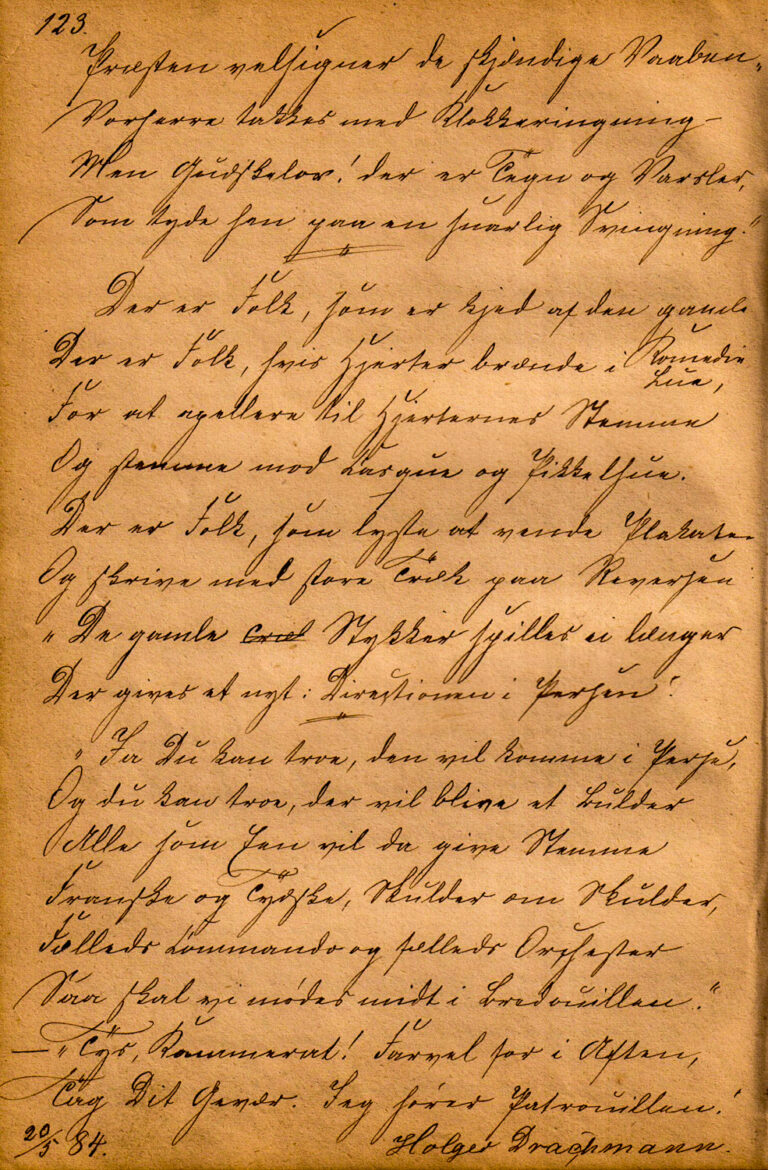 123.
Præsten velsigner de skjændige Vaaben,
Vorherre takkes med Klokkeringning –
Men Gudskelov! der er Tegn og Varsler,
Som tyde hen paa en snarlig Svingning."
Der er Folk, som er kjed af den gamle
Komedie
Der er Folk, hvis Hjerter brænde i Lue,
For at apellere til Hjerternes Stemme
Og stemme mod Casque og Pikkelhue.
Der er Folk, som lyste at vende Plakaten
Og skrive med store Træk paa Reversen
"De gamle Stykker spilles ei længer
Der gives et nyt: Direktionen i Persen!
"Ja Du kan troe, den vil komme i Perse,
Og du kan troe, der vil blive et Bulder
Alle som Een vil da give Stemme
Franske og Tydske, Skulder om Skulder,
Fælleds Commando og fælleds Orchester
Saa skal vi mødes midt i Bredouillen."
— "Tys, Kammerat! Farvel for i Aften,
Tag Dit Gevær. Jeg hører Patrouillen."
20/5 84. Holger Drachmann.